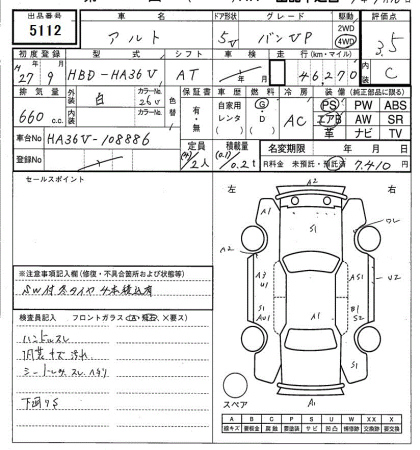 出品番号 車名 ドア形状 グレード 駆動 評価点
5112 アルト 5V バンVP 2WD 4WD 3.5
初度登録 型式 シフト 車検 走行(km・マイル) 内装
27年9月 HBD-HA36V AT 年 月 46,270 C
排気量 外装 色 カラーNo. 色替 保証書 車歴 燃料 冷房 装備(純正部品に限る)
660 c.c. 白 26U 有・無 自家用 レンタ ( ) G・D ( ) AC PS PW ABS
内装 カラーNo. エアB AW SR
革 ナビ TV
車台No HA36V-108886 定員 (4)/2人 積載量 (0.1)/0.2t
名変期限 年 月 日
登録No R料金 未預託・預託済 7,410 円
セールスポイント
左 右
A2
A1 S1 ワレ
A2
A3 U1 AS1 U2
S1 AU1 A1 B1 S2
S1
A1
スペア
※注意事項記入欄(修復・不具合箇所および状態等)
SW付冬タイヤ4本積込有
検査員記入 フロントガラス(A・飛石・×要ス)
ハンドルスレ
内装キズ汚れ
シートヨゴレ スレ ハガレ
下回りS
A B C P S U W X XX X
線キズ 要板金 腐蝕 要塗装 サビ 凹凸 補修跡 要交換 交換済